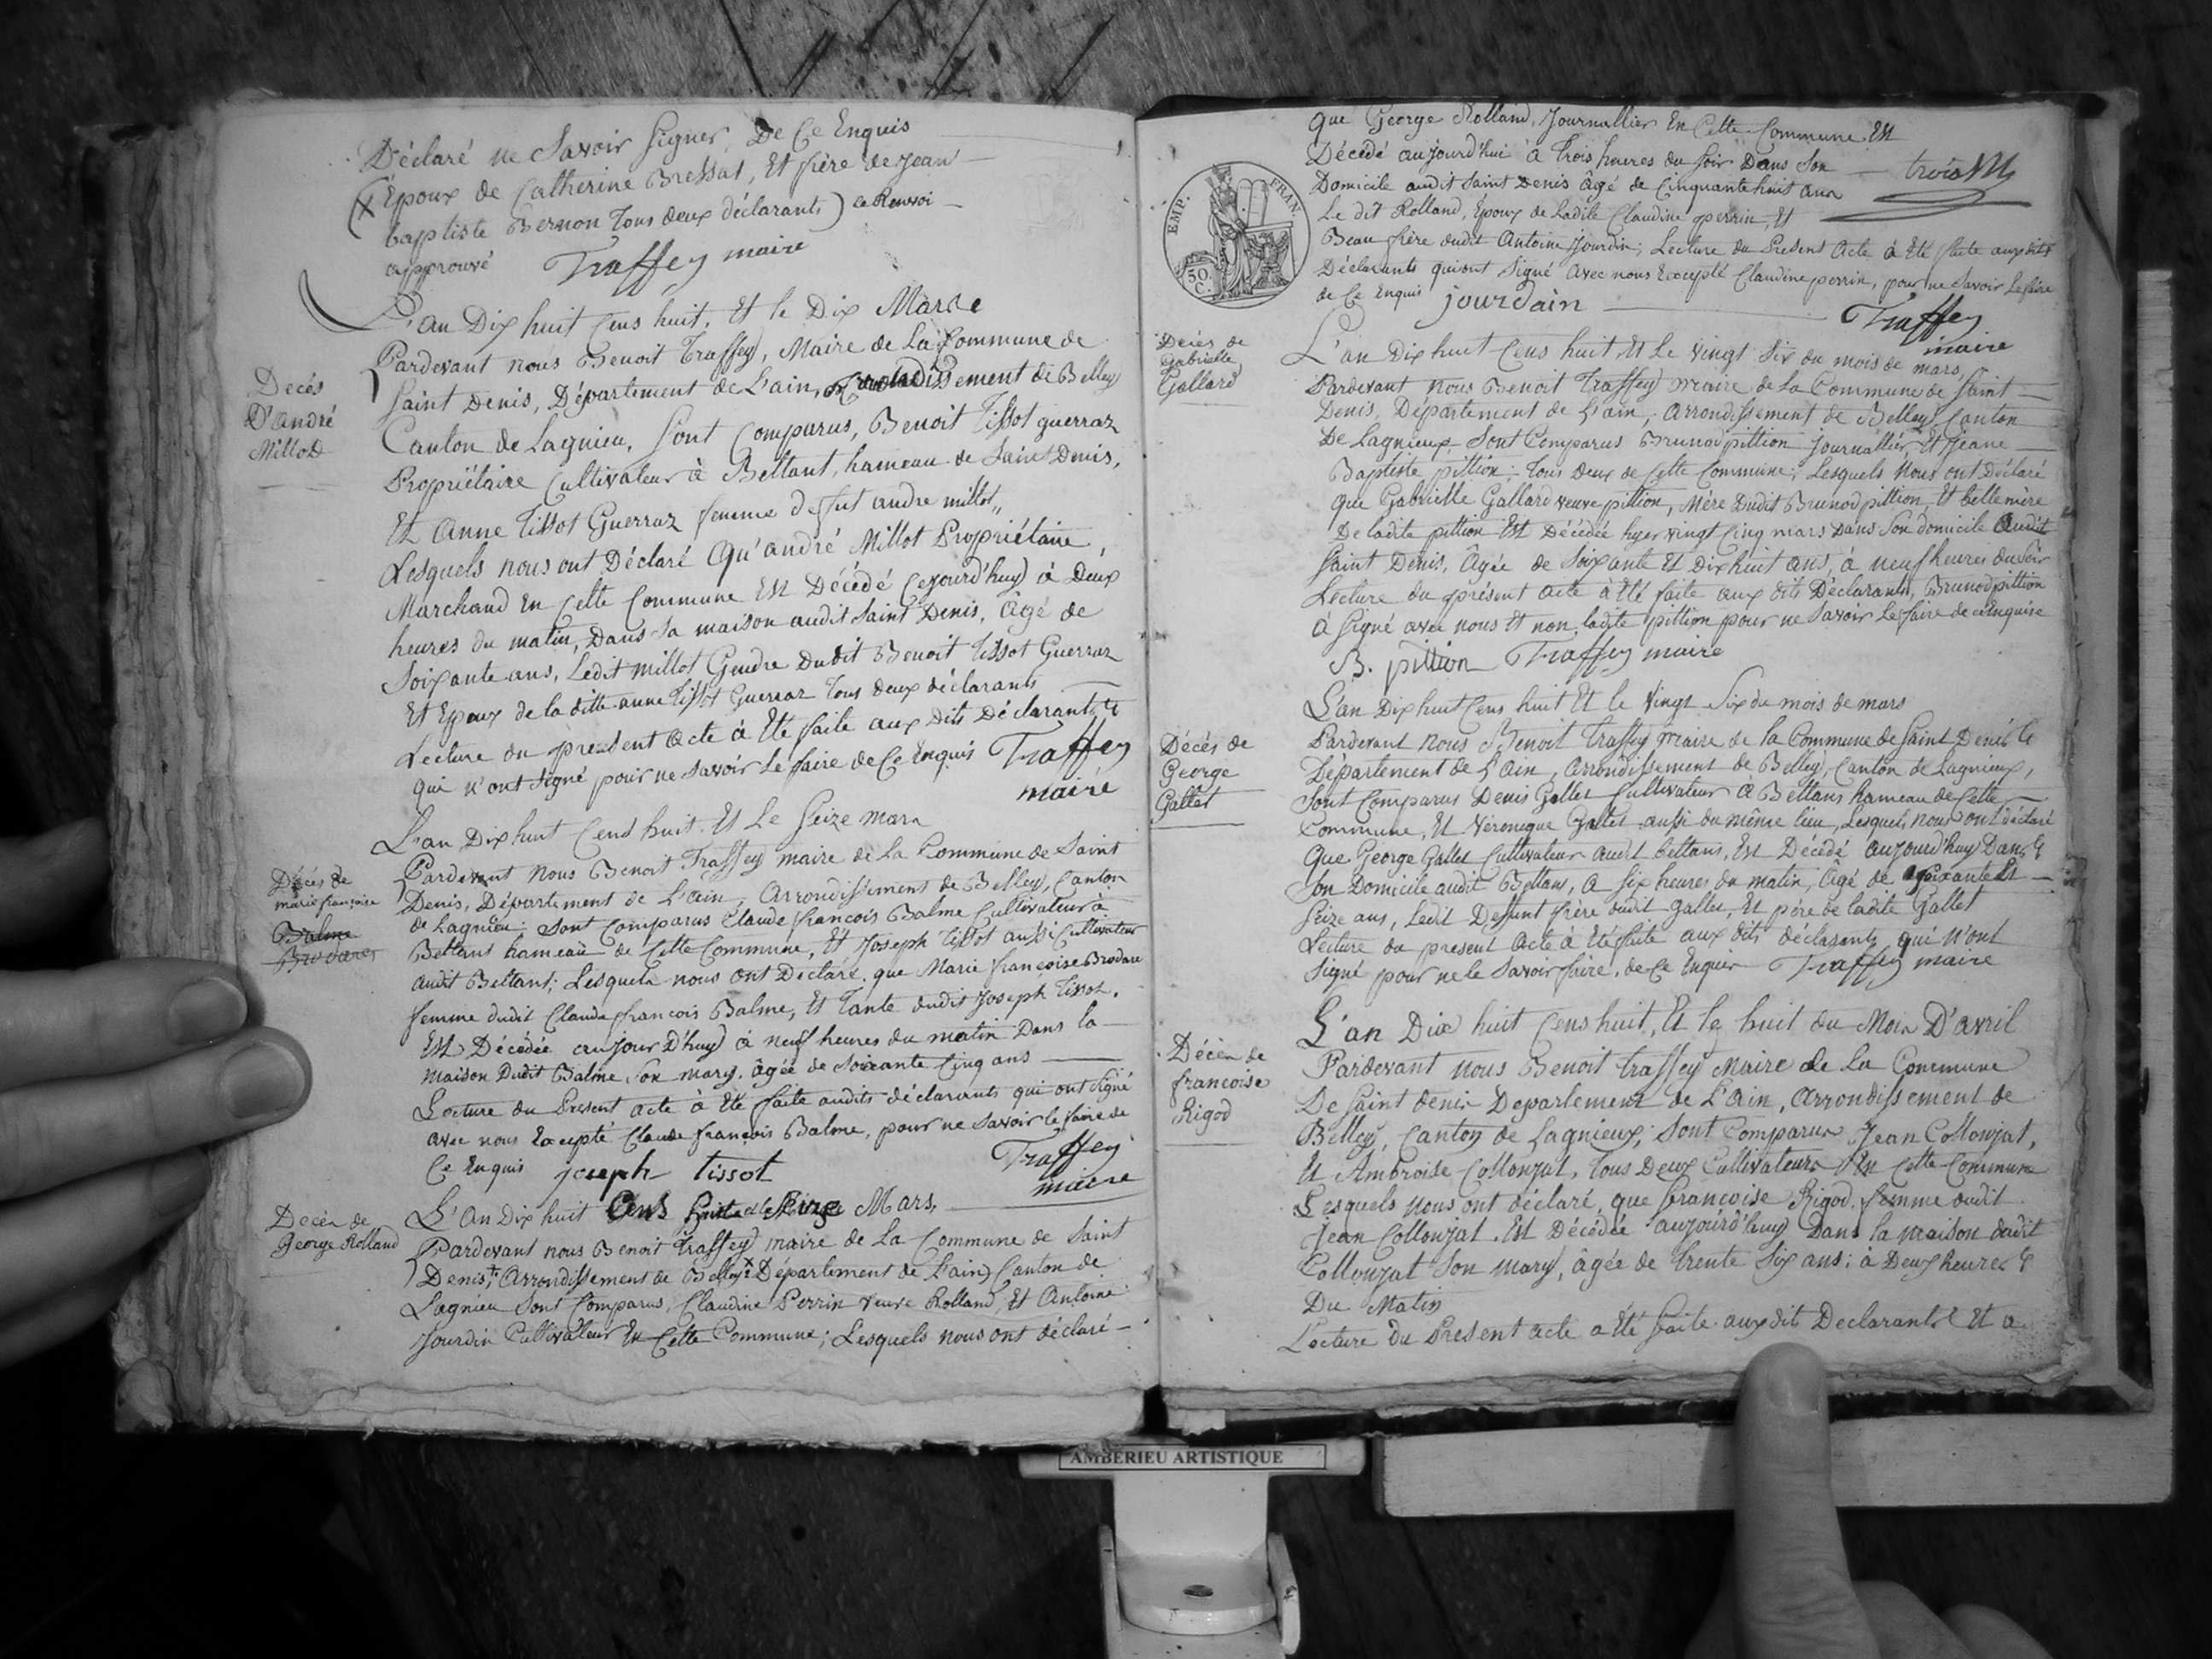 Déclaré ne Savoir signer, De Ce Enquis
(X Epoux de Catherine Bressat, Et frère de Jean
baptiste Bernon Tous deux déclarants) le Renvoi
approuvé Traffey maire
L'an Dix huit Cens huit, Et le Dix Mars
Décés
D'andré
Millot
Pardevant nous Benoit Traffey, Maire de La Commune de
Saint Denis, Département de L'ain, Arrondissement de Belley
Canton de Lagnieu, Sont Comparus, Benoit Tissot guerraz
Propriétaire Cultivateur à Bettant, hameau de Saint Denis,
Et Anne Tissot Guerraz femme de andre millot,,
Lesquels nous ont Déclaré Qu'andré Millot Propriétaire,
Marchand En Cette Commune Est Décédé Cejourd'huy à Deux
heures du matin, Dans sa maison audit Saint Denis, Agé de
Soixante ans, Ledit Millot Gendre Dudit Benoit Tissot Guerraz
Et Epoux de la ditte anne Tissot Guerraz Tous deux déclarants
Lecture du present acte à Eté faite aux Dits Déclarants
Qui n'ont signé pour ne Savoir Le faire de Ce Enquis Traffey
maire
L'an Dix huit Cens huit. Et Le Seize mars
Décés de
marie françoise
Balme
Brodares
Pardevant nous Benoit Traffey maire de La Commune de Saint
Denis, Département de L'ain, Arrondissement de Belley, Canton
de Lagnieu: Sont Comparus Claude francois Balme Cultivateur à
Bettant hameau de Cette Commune, Et Joseph Tissot aussi Cultivateur
audit Bettant; Lesquels nous ont Déclaré, que Marie françoise Brodare
femme dudit Claude francois Balme, Et Tante dudit Joseph Tissot.
Est Décédée aujourD'huy à neuf heures du matin Dans la
maison Dudit Balme Son mary, âgée de Soixante Cinq ans
Lecture du Present acte à Eté faite audits déclarants qui ont Signé
avec nous Excepté Claude françois Balme, pour ne Savoir le faire de
Ce Enquis joseph tissot Traffey
maire
Décès de
George Rolland
L'An Dix huit Cens huit et le Seize Mars,
Pardevant nous Benoit Traffey maire de La Commune de Saint
Denis, Arrondissement de Belley Département de L'ain) Canton de
Lagnieu Sont Comparus, Claudine Perrin veuve Rolland, Et Antoine
Jourdin Cultivateur En Cette Commune; Lesquels nous ont déclaré
EMP. FRAN.
50.
C.
que George Rolland, Journallier En Cette Commune Est
Décédé aujourd'hui à Trois heures du soir Dans Son
Domicile audit Saint Denis âgé de Cinquante huit ans
Le dit Rolland, Epoux de Ladite Claudine perrin, Et
Beau frère dudit Antoine Jourdin; Lecture du Present Acte à Eté faite auxdits
Déclarants qui ont Signé avec nous Excepté Claudine perrin, pour ne Savoir Le faire
de Ce Enquis jourdain Traffey
maire
Décès de
Gabrielle
Gallard
L'an Dix huit Cens huit Et Le vingt Six du mois de mars,
Pardevant nous Benoit Traffey maire de la Commune de Saint
Denis, Département de L'ain, arrondissement de Belley Canton
De Lagnieux, Sont Comparus Brunod pittion Journallier, Et Jeane
Baptiste pittion; Tous Deux de Cette Commune; Lesquels Nous ont Déclaré
que Gabrielle Gallard veuve pittion, Mère Dudit Brunod pittion, Et belle mère
De ladite pittion Est Décédée hyer vingt Cinq mars Dans Son domicile audit
Saint Denis, Âgée de Soixante Et dix huit ans, à neuf heures du Soir
Lecture du présent acte à Eté faite aux dits Déclarants, Brunod pittion
à Signé avec nous Et non ladite pittion pour ne Savoir Le faire de ce Enquise
B. pittion Traffey maire
Décés de
George
Gallet
L'an Dix huit Cens huit Et le Vingt Six du mois de mars
Pardevant Nous Benoit Traffey maire de la Commune de Saint Denis
Département de L'Ain, arrondissement de Belley, Canton de Lagnieux,
Sont Comparus Denis Gallet Cultivateur à Bettans hameau de Cette
Commune, Et Véronique Gallet aussi du même lieu, Lesquels nous ont déclaré
Que George Gallet Cultivateur audit bettans, Est Décédé aujourd'huy Dans
Son Domicile audit Bettans, à Six heures du matin, Âgé de Soixante Et
Seize ans, Ledit Deffunt frère dudit gallet, Et père de ladite Gallet
Lecture du present acte à Eté faite aux dits déclarants qui N'ont
Signé pour ne le Savoir faire, de Ce Enquis Traffey maire
Décès de
francoise
Rigod
L'an Dix huit Cens huit, Et le huit du Mois D'avril
Pardevant nous Benoit Traffey Maire de La Commune
De Saint denis Departement de L'Ain, arrondissement de
Belley, Canton de Lagnieux; Sont Comparus Jean Collonjat,
Et Ambroise Collonjat, Tous Deux Cultivateurs En Cette Commune
Lesquels Nous ont déclaré, que francoise Rigod, femme dudit
Jean Collonjat. Est Décédée aujourd'huy Dans la maison dudit
Collonjat Son mary, âgée de Trente Six ans; à Deux heures
Du Matin
Lecture du Present acte a Eté faite auxdits Declarants Et a
AMBERIEU ARTISTIQUE